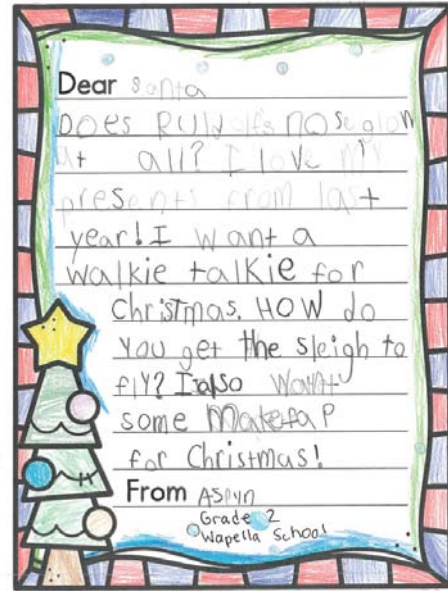 Dear Santa
Does Rudolf's nose glow
at all? I love my
presents from last
year! I want a
walkie talkie for
Christmas. HOW do
you get the sleigh to
fly? I also want
some
for Christmas!
From Aspyn
Grade 2
Wapella School